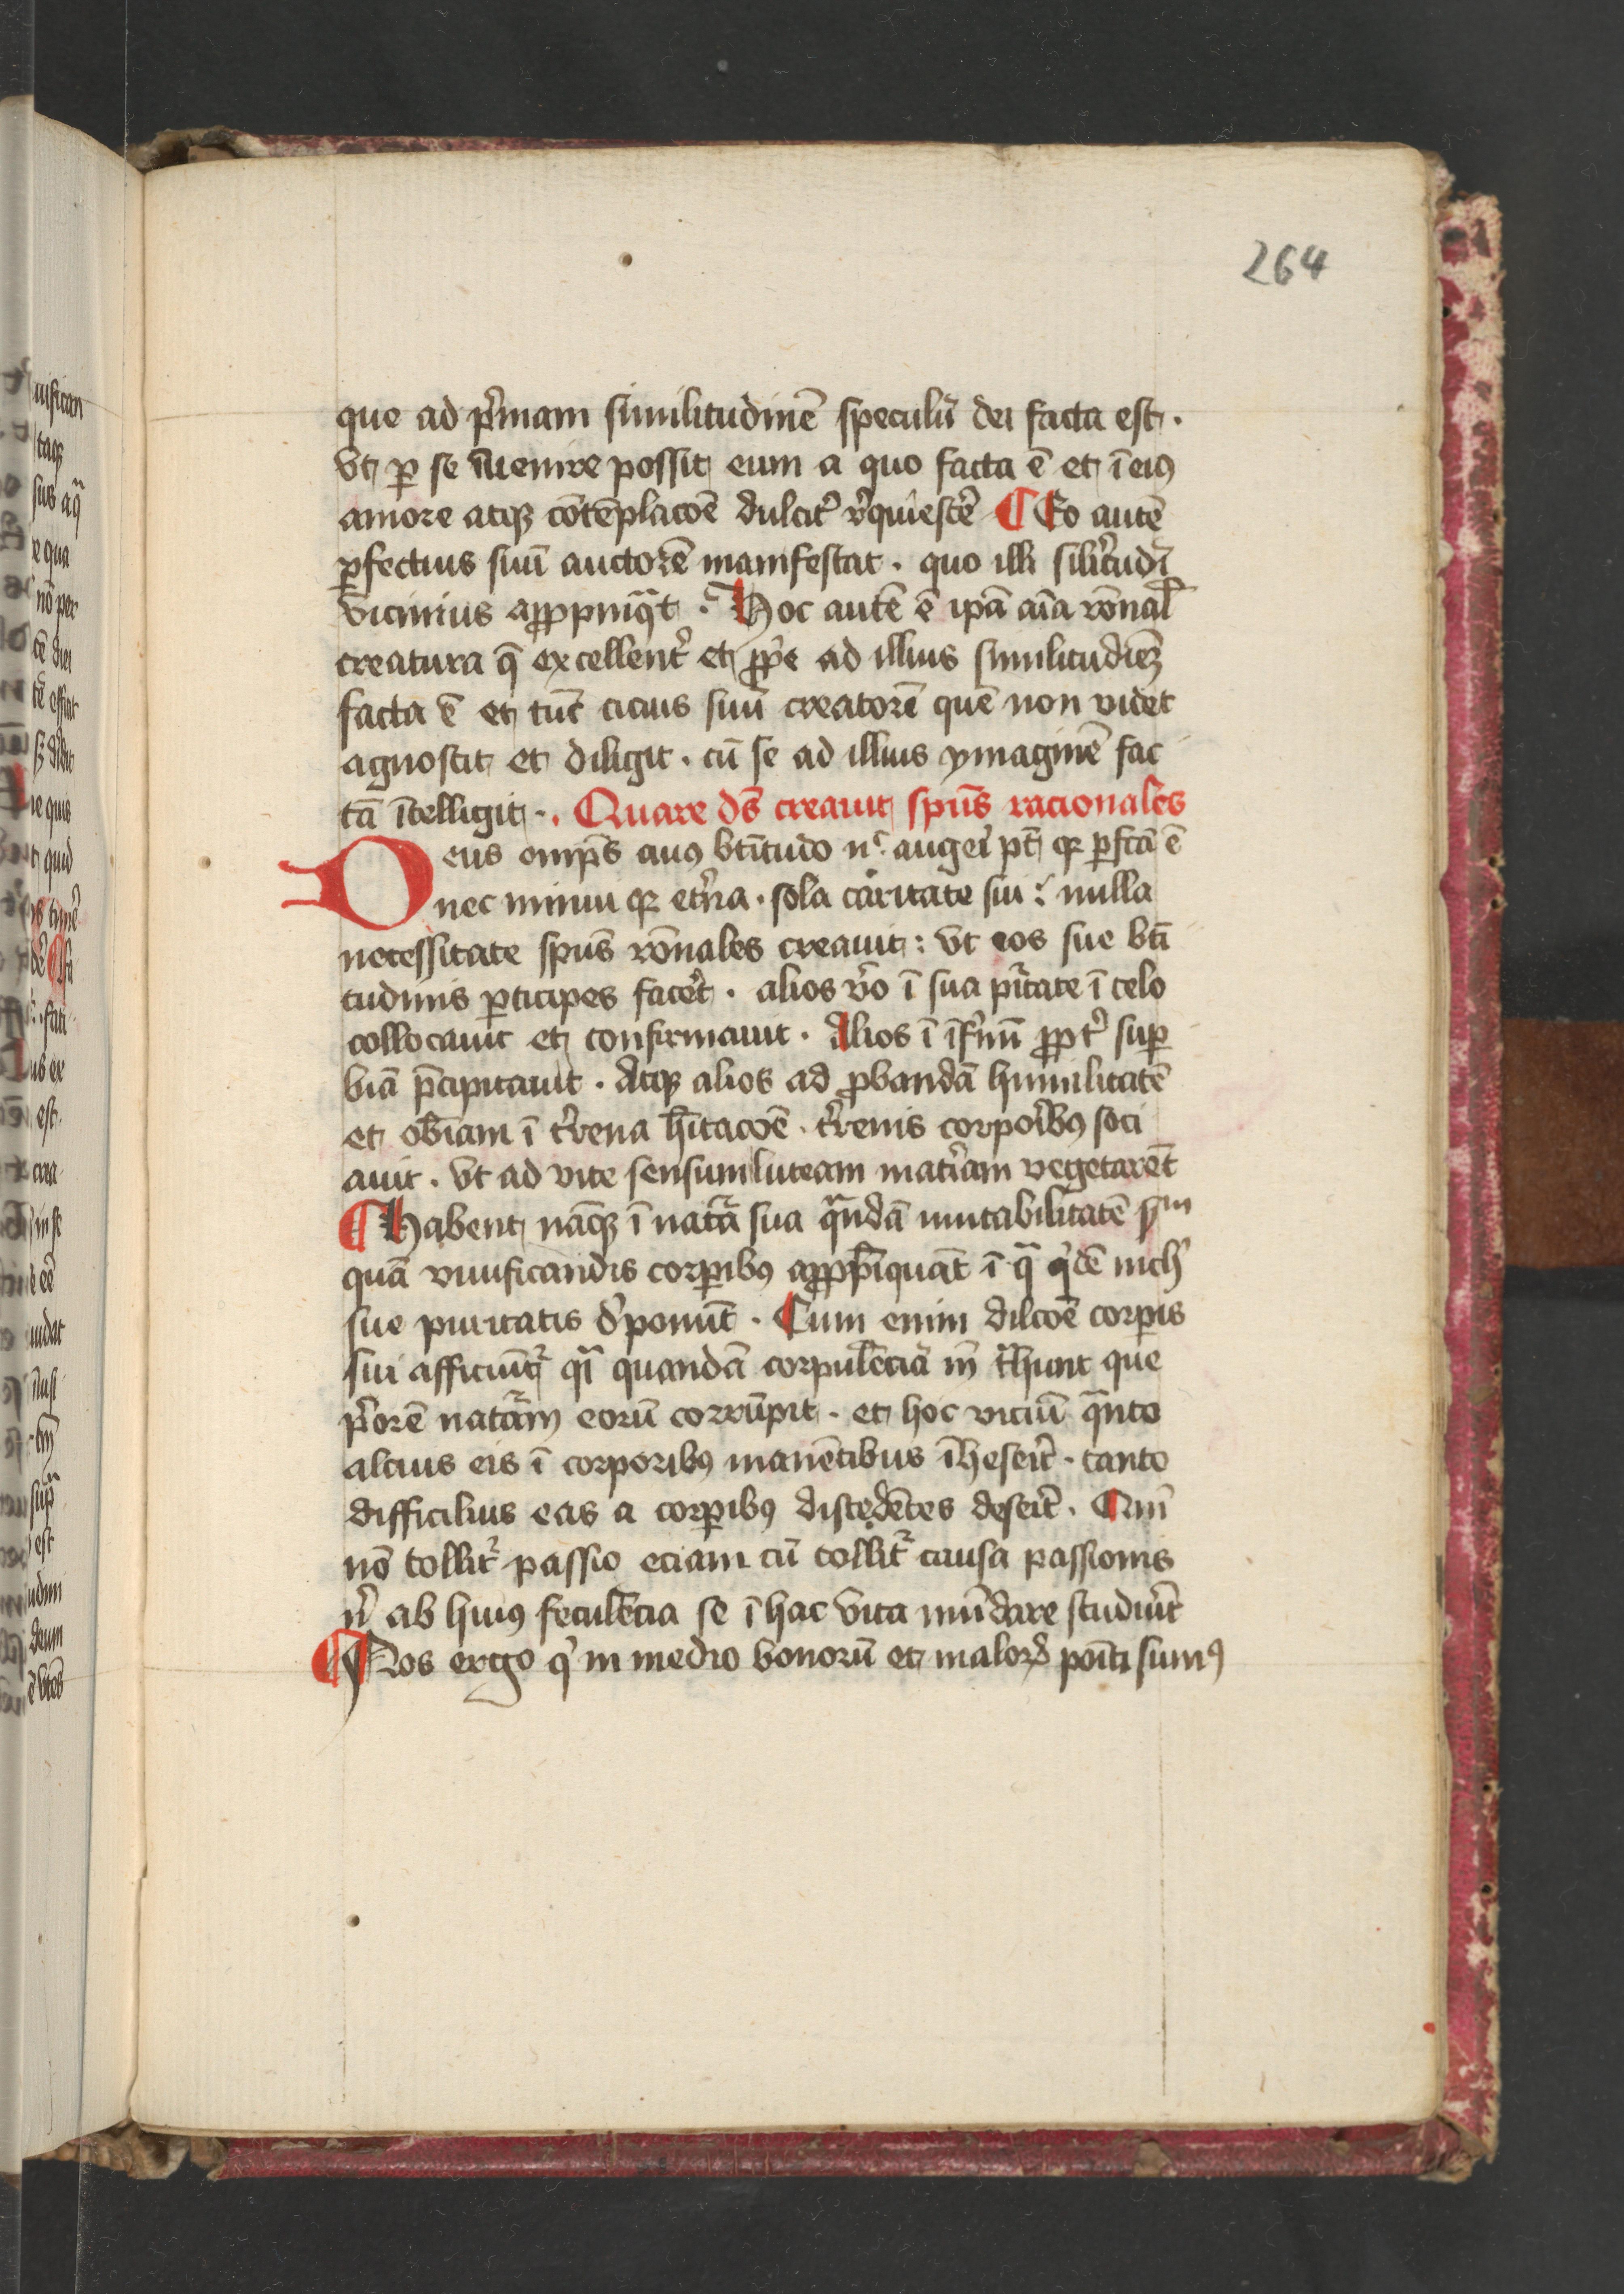 264
que ad p̓mam similitudinē speculū dei facta est.
vt ꝑ se īuenire possit eum a quo facta ē et ī eiꝰ
amore atqꝫ cōtēplacōē dulcit̓ r̓quiesce̓ ¶ Eo autē
ꝑfectius suū auctorē manifestat. quo illi silitudī
vicinius aꝓpinq̄t. Hoc autē ē ip̄a aīa rōnal̓
creatura q̄ excellent̓ et ꝓp̓e ad illius similitudīeꝫ
facta ē et tūc cicius suū creatorē quē non videt
agnoscit et diligit. cū se ad illius ymaginē fac
tā ītelligit. Quare dꝰs creauit sp̄us racionales
Deus omp̄s cuiꝰ btītudo nᶜ auge̓i pt̄ qꝛ ꝑfcā ē
nec minui qꝛ et̓na. sola caritate sui: nulla
necessitate sp̄us rōnales creauit: vt eos sue btī
tudinis ꝑticipes face̓t. alios v̓o ī sua pu̓itate ī celo
collocauit et confirmauit. Alios ī īf̓nū ꝓpt̓ suꝑ
biā p̄cipitauit. Atqꝫ alios ad ꝓbandā humilitatē
et ob̄iam ī t̓rena h̄itacōē. t̓renis corpo̓ibꝰ soci
auit. vt ad vite sensum luteam mat̓iam vegetarēt
¶ Habent nāqꝫ ī nat̄a sua q̄ndā mutabilitatē sᵐ
quā viuificandis corꝑibꝰ aꝓp̄iquāt ī q̄ q̓dē nich̓
sue puritatis d̓ponūt. Cum enim dilcōē corꝑis
sui afficiūt̓ q̄i quandā corpulēciā īn t̓hunt que
p̓orē nat̄am eorū corrūpit. et hoc viciū q̄nto
alcius eis ī corporibꝰ manētibus īhese̓it. tanto
difficilius eas a corꝑibꝰ discedētes dese̓it. Quī
nō tollit̓ passio eciam cū tollit̓ causa passionis
n̓ ab huiꝰ feculēcia se ī hac vita mūdare studue̓t
¶ Nos ergo q̓ in medio bonorū et maloꝝ poīti sumꝰ